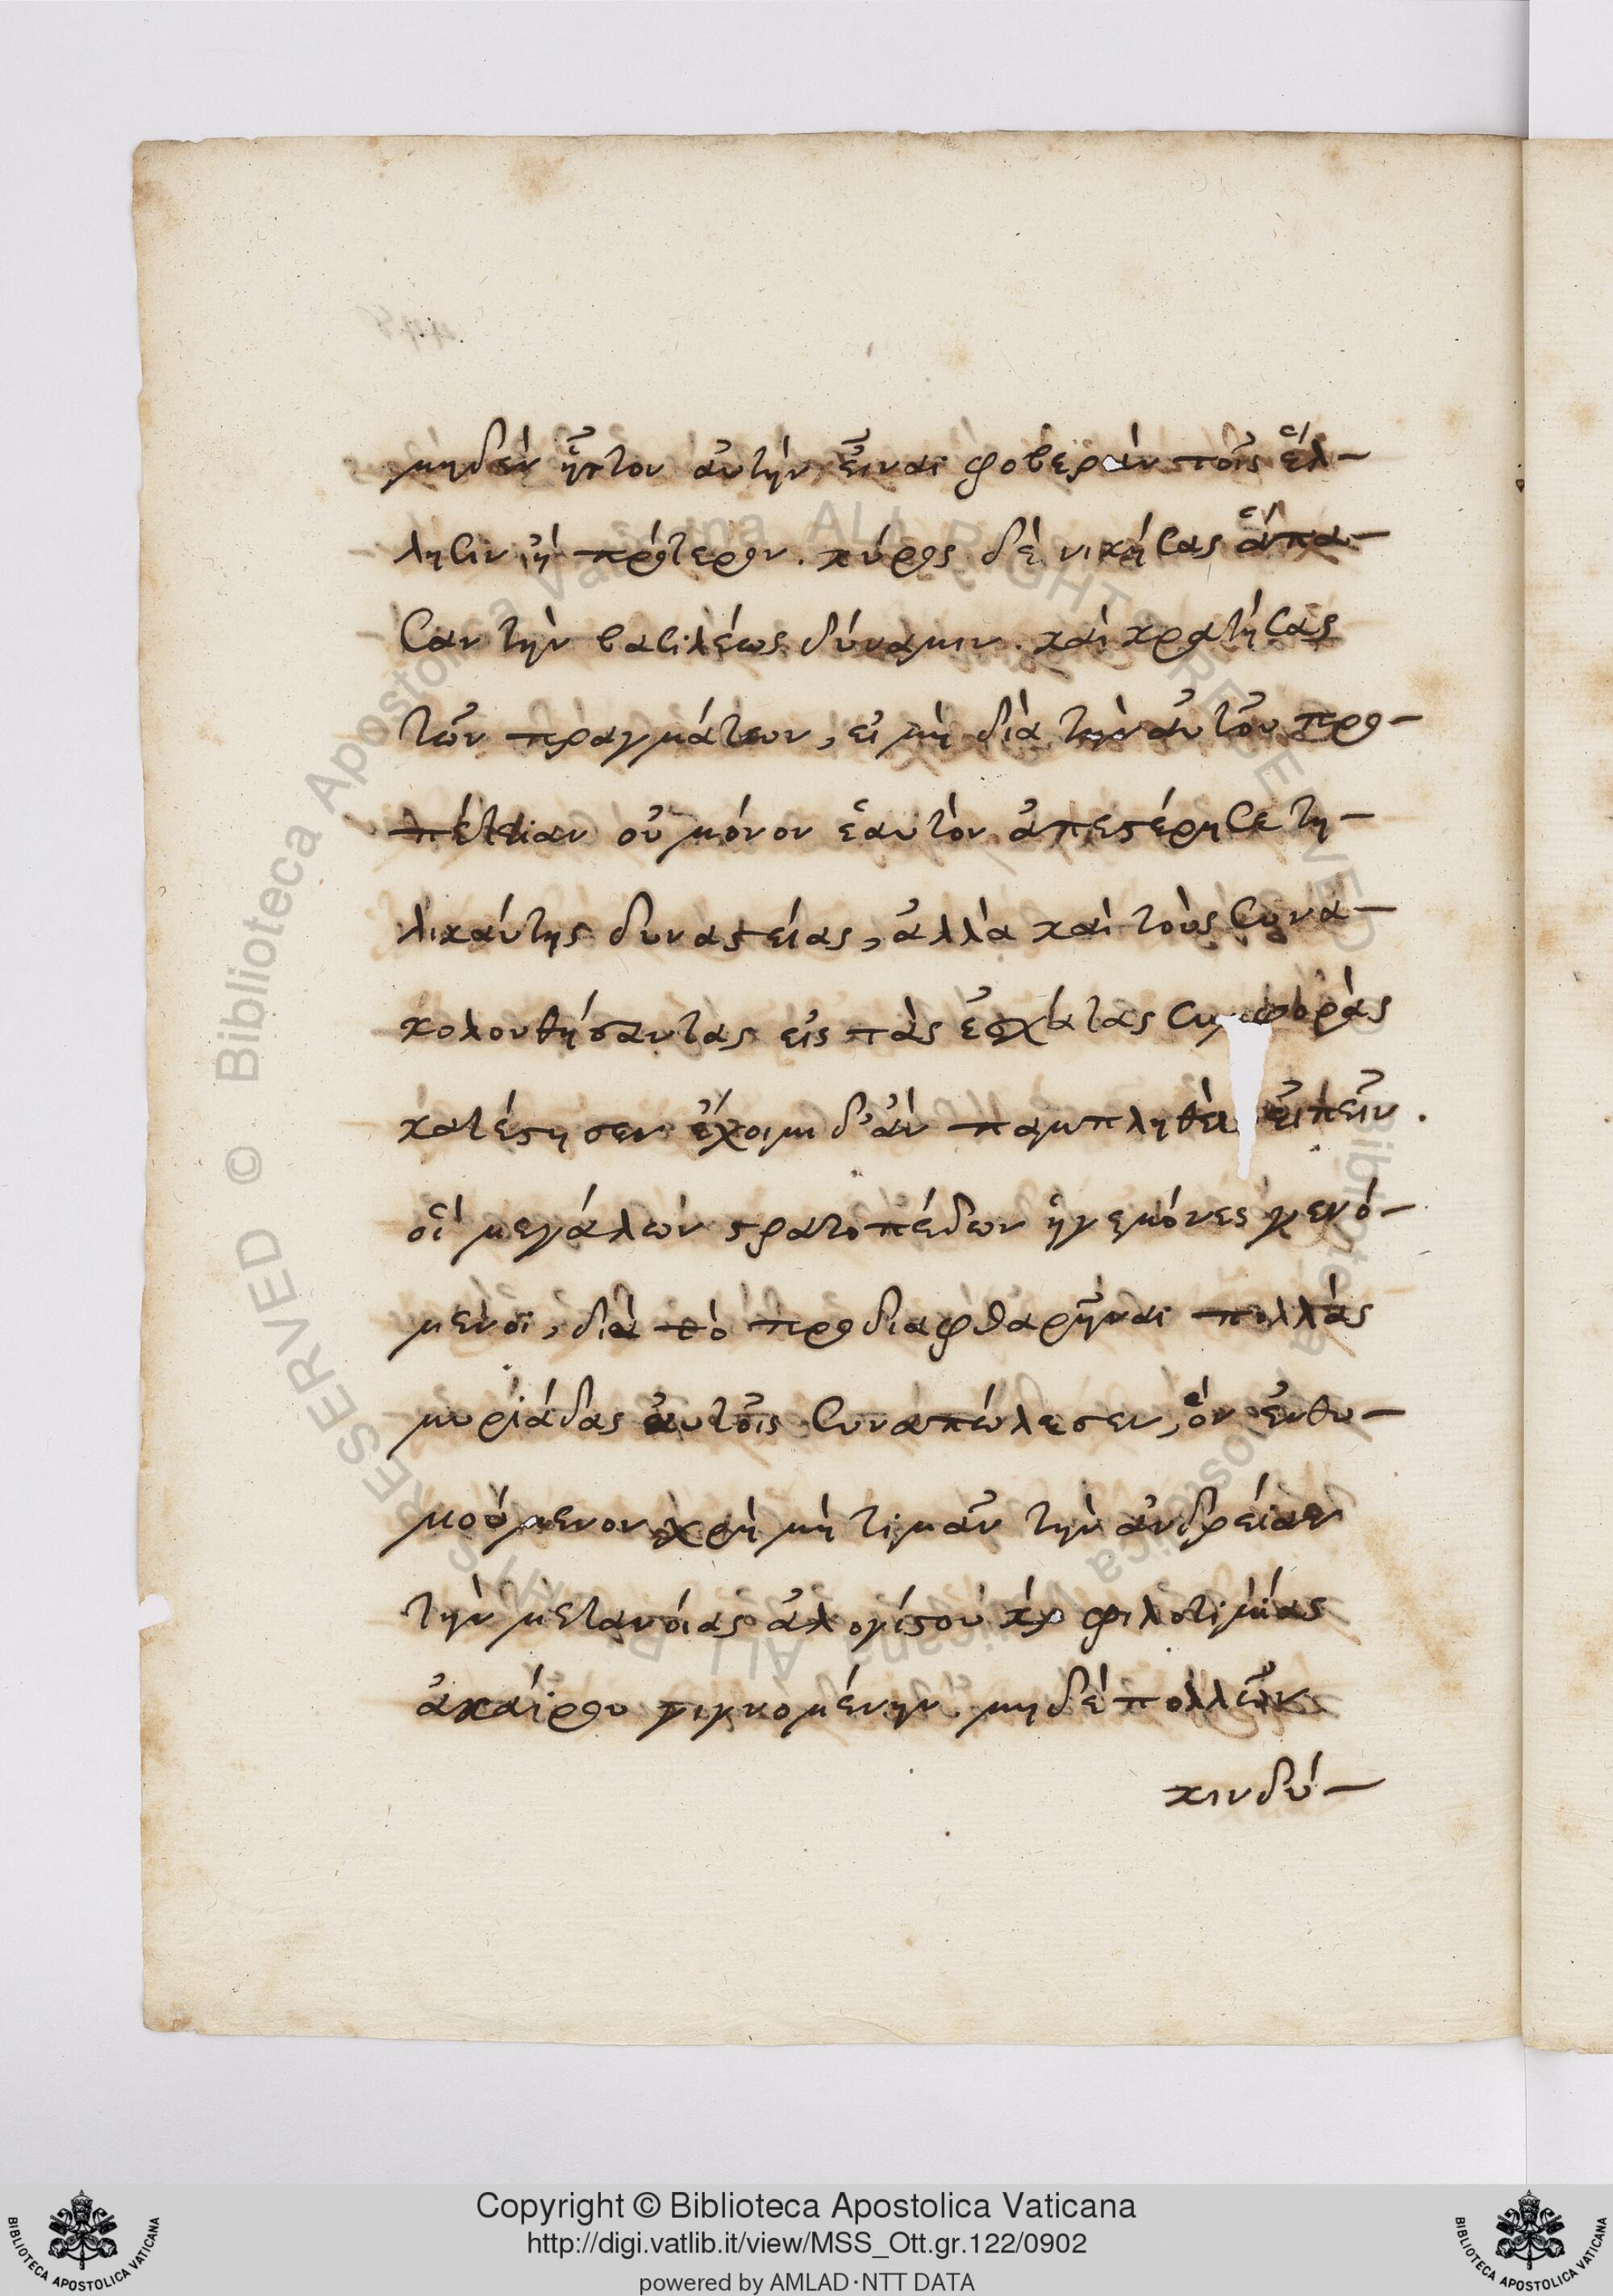 μηδὲν ἧττον αὐτὴν εἶναι φοβερὰν τοῖς ἕλ-
λησιν ἢ πρότερον. κύρος δὲ νικήσας ἅπα-
σαν τὴν βασιλέως δύναμιν. καὶ κρατήσας
τῶν πραγμάτων, εἰ μὴ διὰ τὴν αὐτοῦ προ-
πέτειαν οὐ μόνον ἑαυτὸν ἀπεστέρησε τη-
λικαύτης δυναστείας, ἀλλὰ καὶ τοὺς συνα-
κολουθήσαντας εἰς τὰς ἐσχάτας συμφορὰς
κατέστησεν ἔχοιμι δ' ἂν παμπληθεῖ εἰπεῖν.
οἵ μεγάλων στρατοπέδων ἡγεμόνες γενό-
μενοι, διὰ τὸ προδιαφθαρῆναι πολλὰς
μυριάδας αὐτοῖς συναπώλεσεν, ὃν ἐνθυ-
μούμενον χρὴ μὴ τιμᾶν τὴν ἀνδρείαν
τὴν μετανοίας ἀλογίστου καὶ φιλοτιμίας
ἀκαίρου γιγνομένην μηδὲ πολλῶν
κινδύ-
Copyright © Biblioteca Apostolica Vaticana
http://digi.vatlib.it/view/MSS_Ott.gr.122/0902
powered by AMLAD·NTT DATA